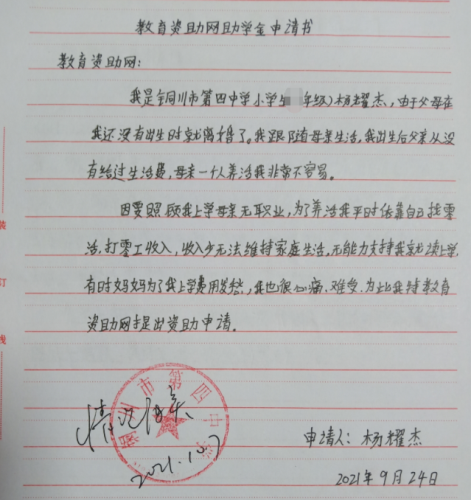 教育资助网助学金申请书
教育资助网：
我是铜川市第四中学小学 年级）杨耀杰，由于父母在
我还没有出生时就离婚了。我跟随母亲生活，我出生后父亲从没
有给过生活费，母亲一个人养活我非常不容易。
因要照顾我上学母亲无职业，为了养活我平时依靠自己找零
活，打零工收入，收入少无法维持家庭生活，无能力支持我就读上学，
有时妈妈为了我上学费用发愁，我也很心痛，难受，为此我特教育
资助网提出资助申请。
情况属实
铜川市第四中学
2021.10.7
申请人：杨耀杰
2021年9月24日
装
订
线